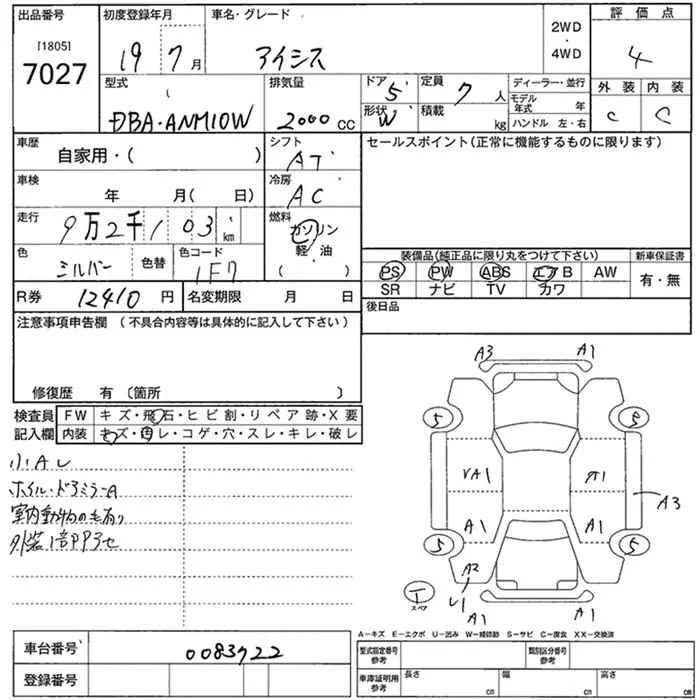 出品番号 初度登録年月 車名・グレード 2WD・4WD 評価点
[1805]
7027 19年7月 アイシス 4
型式 排気量 ドア 5 定員 7人 ディーラー・並行 外装 内装
DBA・ANM10W 2000cc 形状 W 積載 kg モデル年式 年 C C
ハンドル 左・右
車歴 自家用・( ) シフト AT セールスポイント(正常に機能するものに限ります)
車検 年 月( 日) 冷房 AC
走行 9万2千103km 燃料 ガソリン
色 シルバー 色替 色コード 1F7 軽・油
( )
装備品(純正品に限り丸をつけて下さい) 新車保証書
PS PW ABS エアB AW 有・無
SR ナビ TV カワ
R券 12410円 名変期限 月 日 後日品
注意事項申告欄(不具合内容等は具体的に記入して下さい)
修復歴 有〔箇所 〕
検査員 FW キズ・飛石・ヒビ割・リペア跡・X要
記入欄 内装 キズ・汚レ・コゲ・穴・スレ・キレ・破レ
小Aレ
ホイル・ドアミラーA
室内動物の毛有り
A3 A1
5 5
VA1 A1
A3
A1 A1
5 5
A2
A1 A1
スペア
A−キズ E−エクボ U−凹み W−補修跡 S−サビ C−腐食 XX−交換済
車台番号 0083922 型式指定番号 参考 類別区分番号 参考
登録番号 車庫証明用 参考 長さ cm 幅 cm 高さ cm